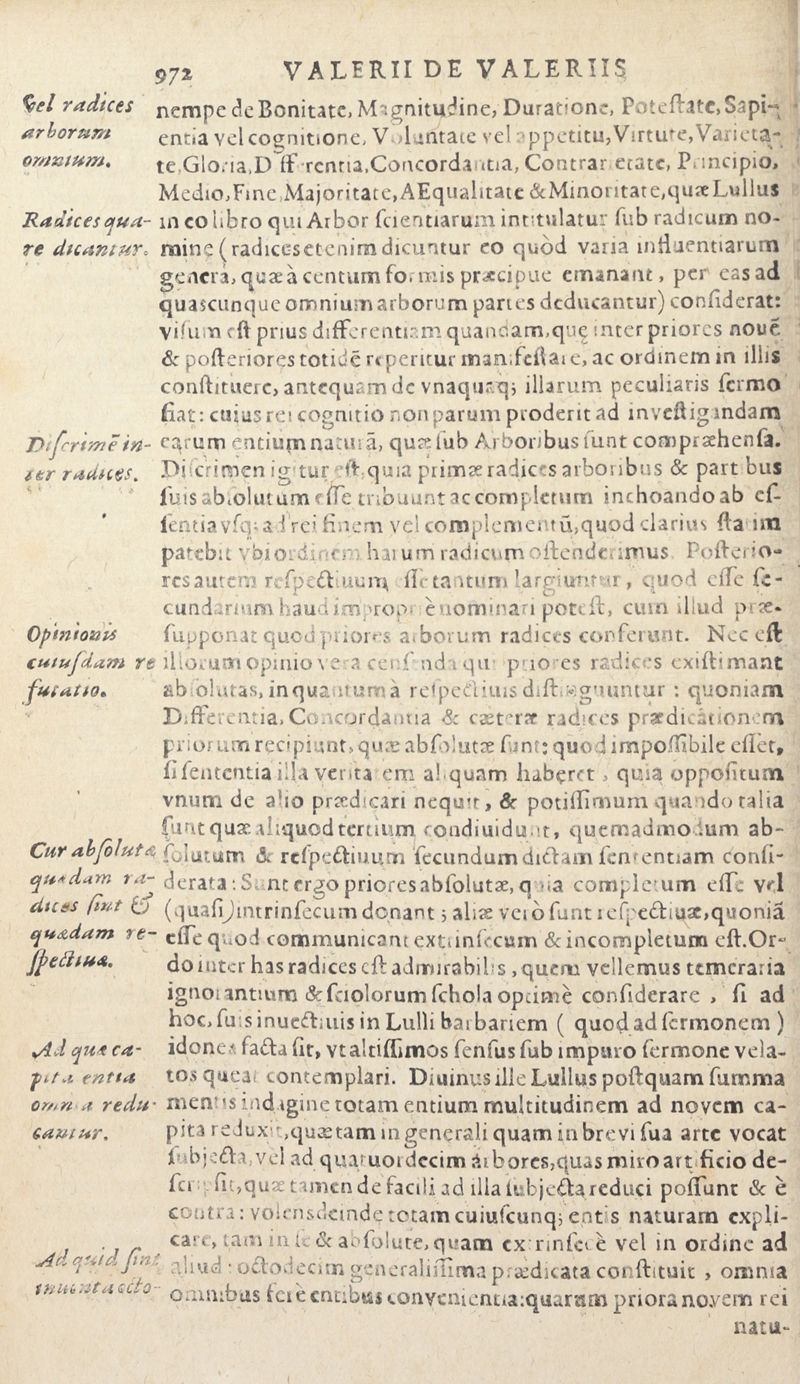 972 VALERII DE VALERIIS
Vel radices
arborum
omnium.
nempe de Bonitate, Magnitudine, Duratione, Poteſtate, Sapi-
entia vel cognitione, Voluntate vel appetitu, Virtute, Varieta-
te, Gloria, Differentia, Concordantia, Contrarietate, Principio,
Medio, Fine, Majoritate, AEqualitate & Minoritate, quæ Lullus
Radices qua-
re dicantur.
in eo libro qui Arbor ſcientiarum intitulatur ſub radicum no-
mine (radices etenim dicuntur eo quòd varia influentiarum
genera, quæ à centum formis præcipue emanant, per eas ad
quascunque omnium arborum partes deducantur) conſiderat:
viſum eſt prius differentiam quandam, quę inter priores nouē
& poſteriores totidē reperitur manifeſtare, ac ordinem in illis
conſtituere, antequam de vnaquaqȝ illarum peculiaris ſermo
fiat: cuius rei cognitio non parum proderit ad inveſtigandam
Diſcrimē in-
ter radices.
earum entium naturā, quæ ſub Arboribus ſunt compræhenſa.
Diſcrimen igitur eſt, quia primæ radices arboribus & partibus
ſuis abſolutum eſſe tribuunt ac completum inchoando ab eſ-
ſentia vſqȝ ad rei finem vel complementū, quod clarius ſtatim
patebit vbi ordinem harum radicum oſtenderimus. Poſterio-
res autem reſpectiuum eſſe tantum largiuntur, quod eſſe ſe-
cundarium haud impropriè nominari poteſt, cum illud præ-
Opinionis
cuiuſdam re
futatio.
ſupponat quod priores arborum radices conferunt. Nec eſt
illorum opinio vera cenſenda qui priores radices exiſtimant
abſolutas, in quantum à reſpectiuis diſtinguuntur : quoniam
Differentia, Concordantia & cæteræ radices prædicationem
priorum recipiunt, quæ abſolutæ ſunt: quod impoſſibile eſſet,
ſi ſententia illa veritatem aliquam haberet, quia oppoſitum
vnum de alio prædicari nequit, & potiſſimum quando talia
ſunt quæ aliquod tertium condiuidunt, quemadmodum ab-
Cur abſolutæ
quædam ra-
dices ſint &
quædam re-
ſpectiuæ.
ſolutum & reſpectiuum ſecundum dictam ſententiam conſi-
derata: Sunt ergo priores abſolutæ, quia completum eſſe vel
(quaſi) intrinſecum donant; aliæ verò ſunt reſpectiuæ, quoniā
eſſe quod communicant extrinſecum & incompletum eſt. Or-
do inter has radices eſt admirabilis, quem vellemus temeraria
ignorantium & ſciolorum ſchola optimè conſiderare, ſi ad
hoc, ſuis inuectiuis in Lulli barbariem ( quod ad ſermonem )
Ad quæ ca-
pita entia
omnia redu-
cantur.
idonea facta ſit, vt altiſſimos ſenſus ſub impuro ſermone vela-
tos queat contemplari. Diuinus ille Lullus poſtquam ſumma
mentis indagine totam entium multitudinem ad novem ca-
pita reduxit, quæ tam in generali quam in brevi ſua arte vocat
ſubjecta, vel ad quatuordecim arbores, quas miro artificio de-
ſcripſit, quæ tamen de facili ad illa ſubjecta reduci poſſunt & è
contra: volens deinde totam cuiuſcunqȝ entis naturam expli-
care, tam in ſe & abſolute, quam extrinſecè vel in ordine ad
Ad quid ſint
inuenta octo-
aliud: octodecim generaliſſima prædicata conſtituit, omnia
omnibus ferè entibus convenientia: quarum priora novem rei
natu-